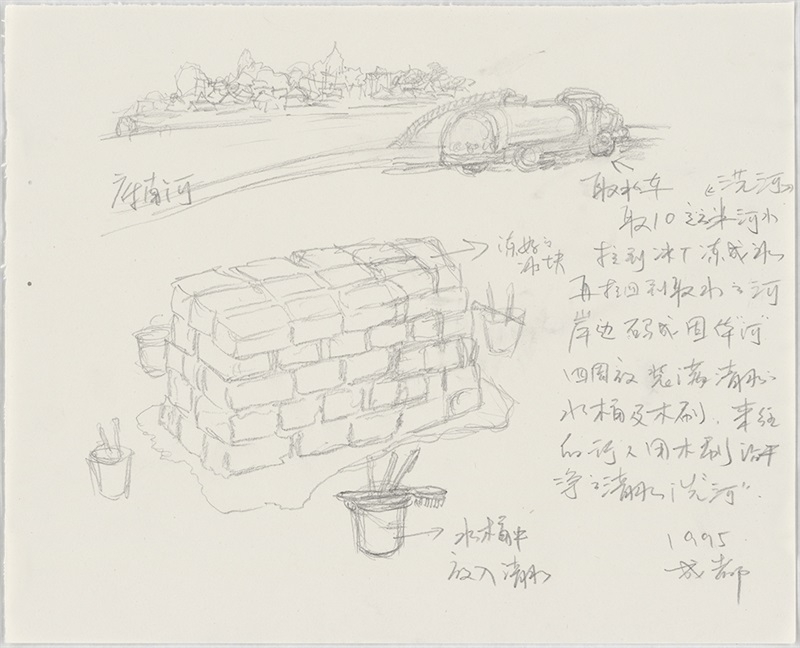 府南河
取水车 《洗河》
取10立方米河水
拉到冰厂冻成冰
再拉回到取水之河
岸边码成固体“河”
四周放装满清水之
水桶及木刷.来往
的行人用木刷沾干
净之清水“洗河”.
1995
成都
冻好之
冰块
水桶中
放入清水